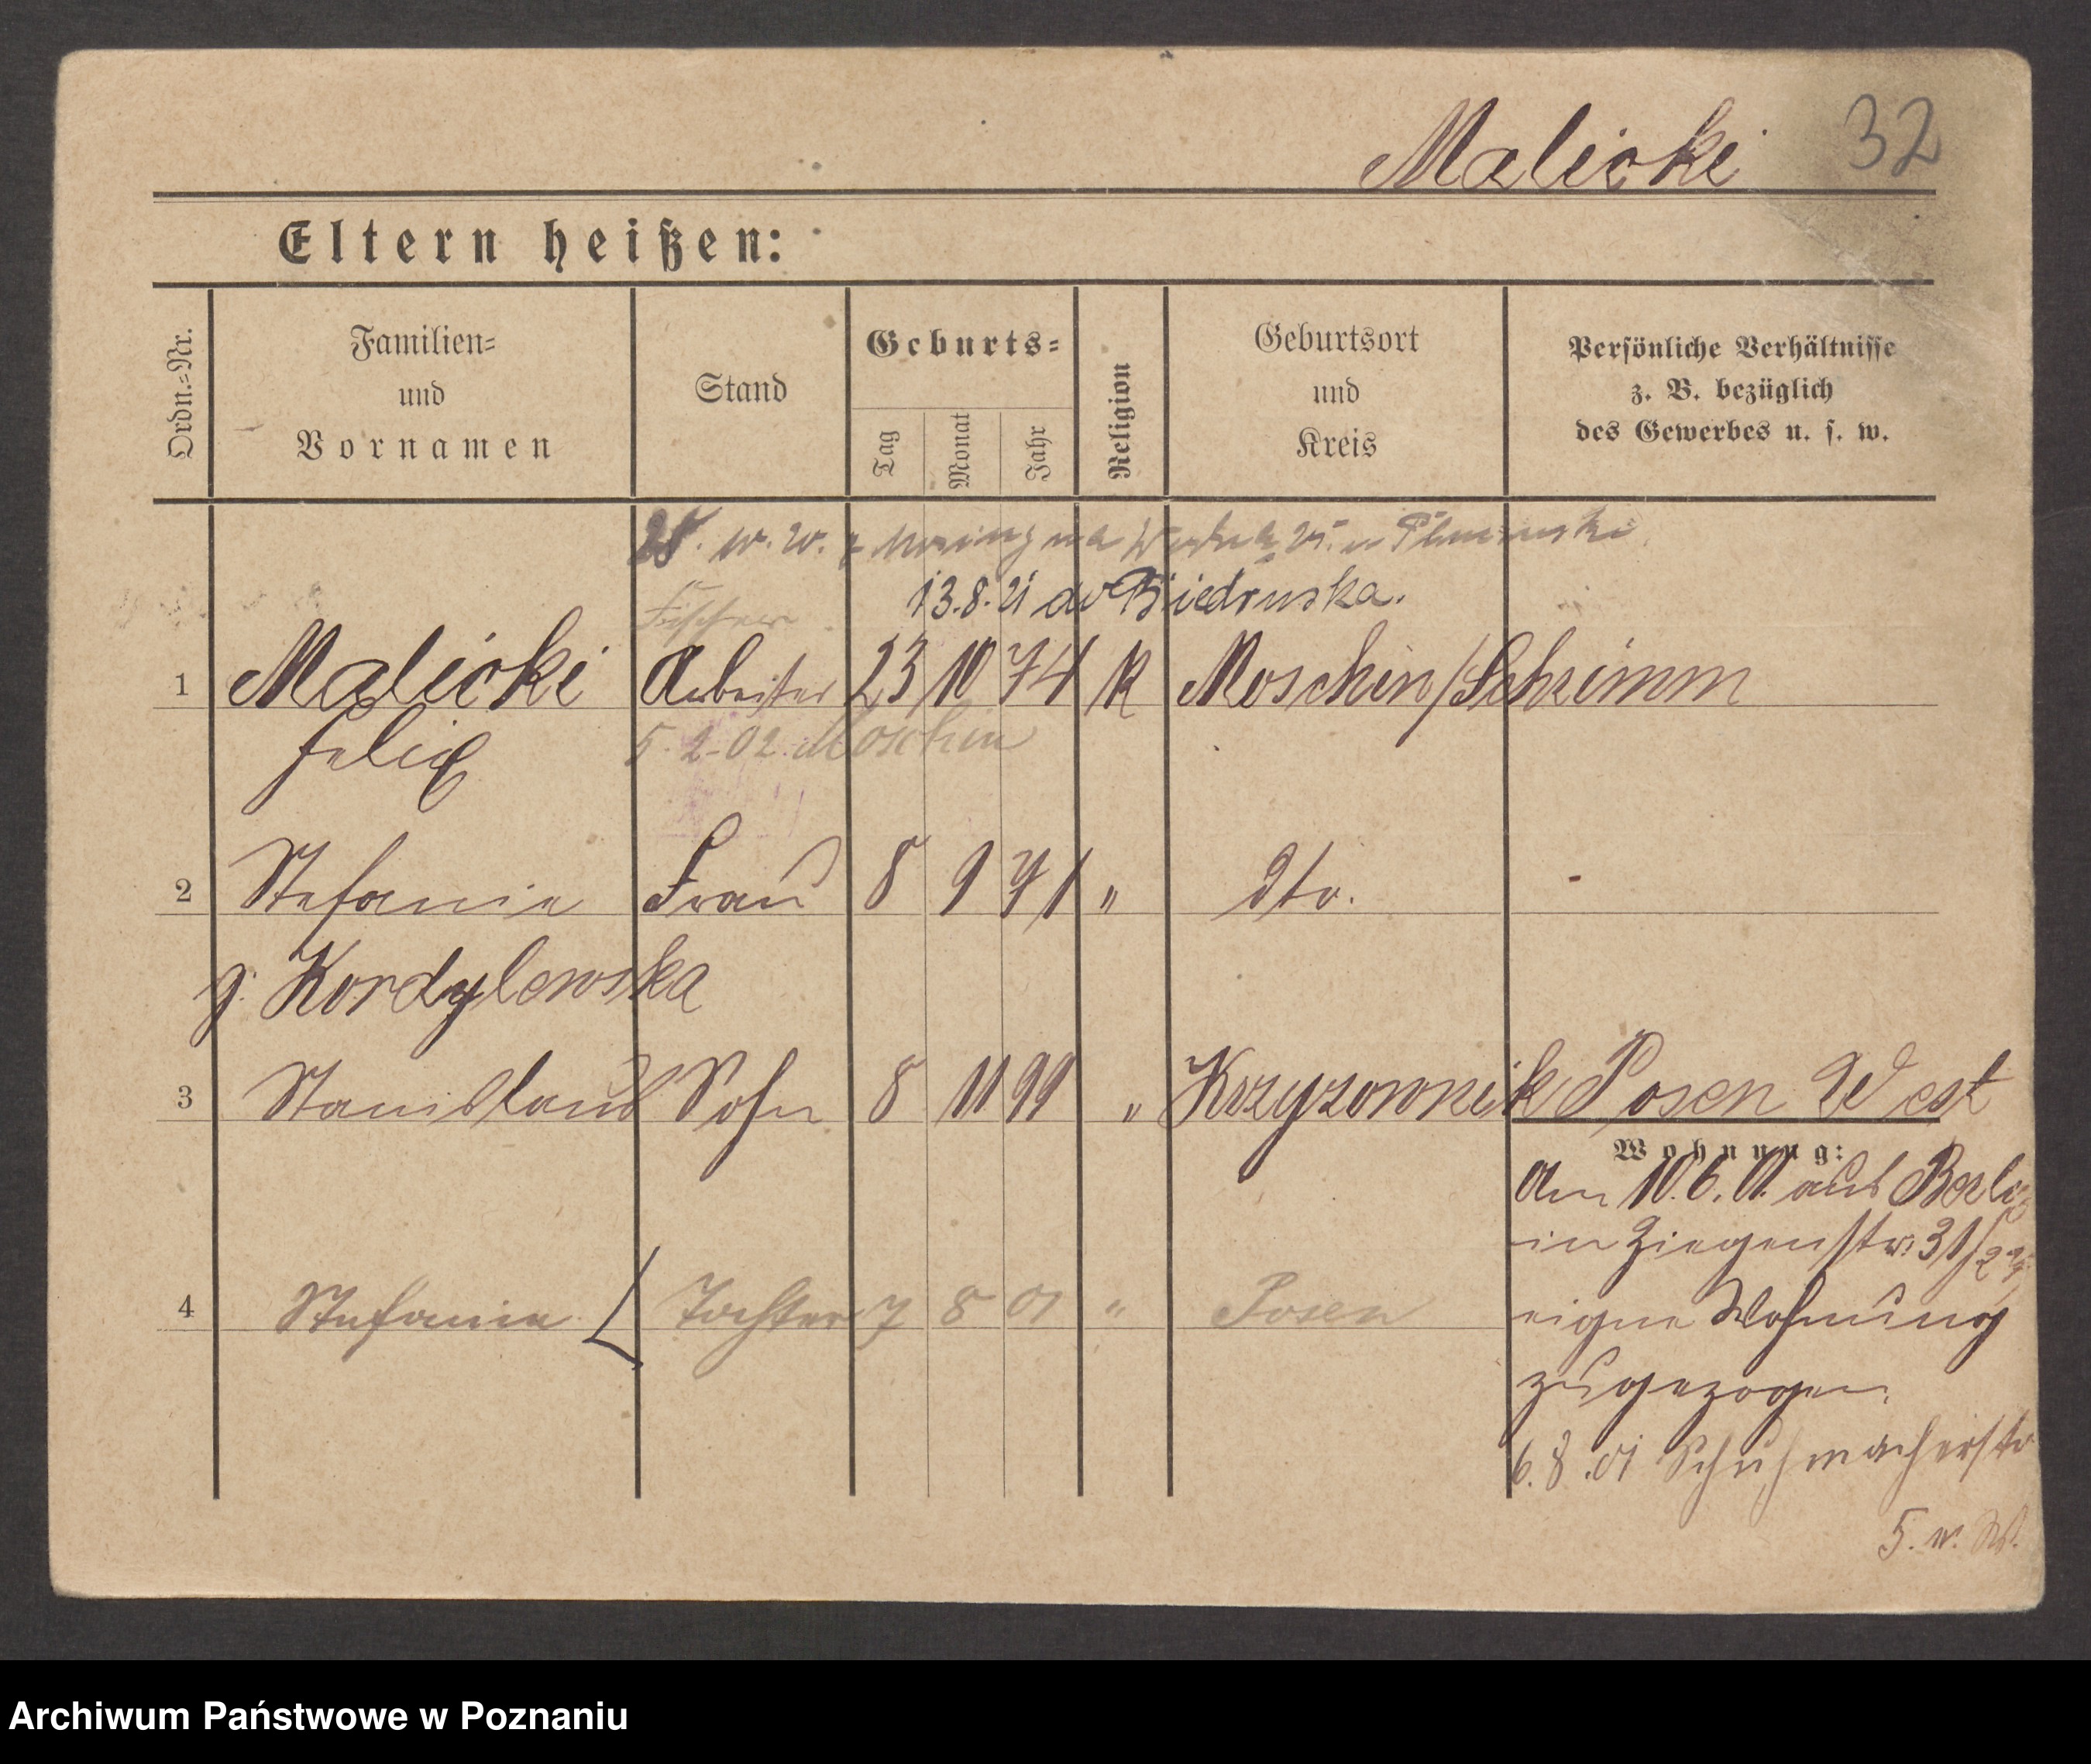 Malicki 32
Eltern heißen:
Ordn.=Nr. Familien= und Vornamen Stand Geburts= Tag Monat Jahr Religion Geburtsort und Kreis Persönliche Verhältnisse z. B. bezüglich des Gewerbes u. s. w.
w. w.
Fischer 13.8.21 do Biedruska.
1 Malicki Arbeiter 23 10 74 k Moschin/Schrimm
Felix 5.2.02. Moschin
2 Stefanie Frau 8 9 71 " dto. -
g. Kordylewska
3 Stanislaus Sohn 8 11 99 " Krzyzownik Posen West
Wohnung:
Am 10.6.01. aus Berlin
in Ziegenstr. 31/
4 Stefanie Tochter 7 8 01 " Posen
eigne Wohnung
zugezogen.
6.8.01 Schuhmacherstr
5. w. W.
Archiwum Państwowe w Poznaniu